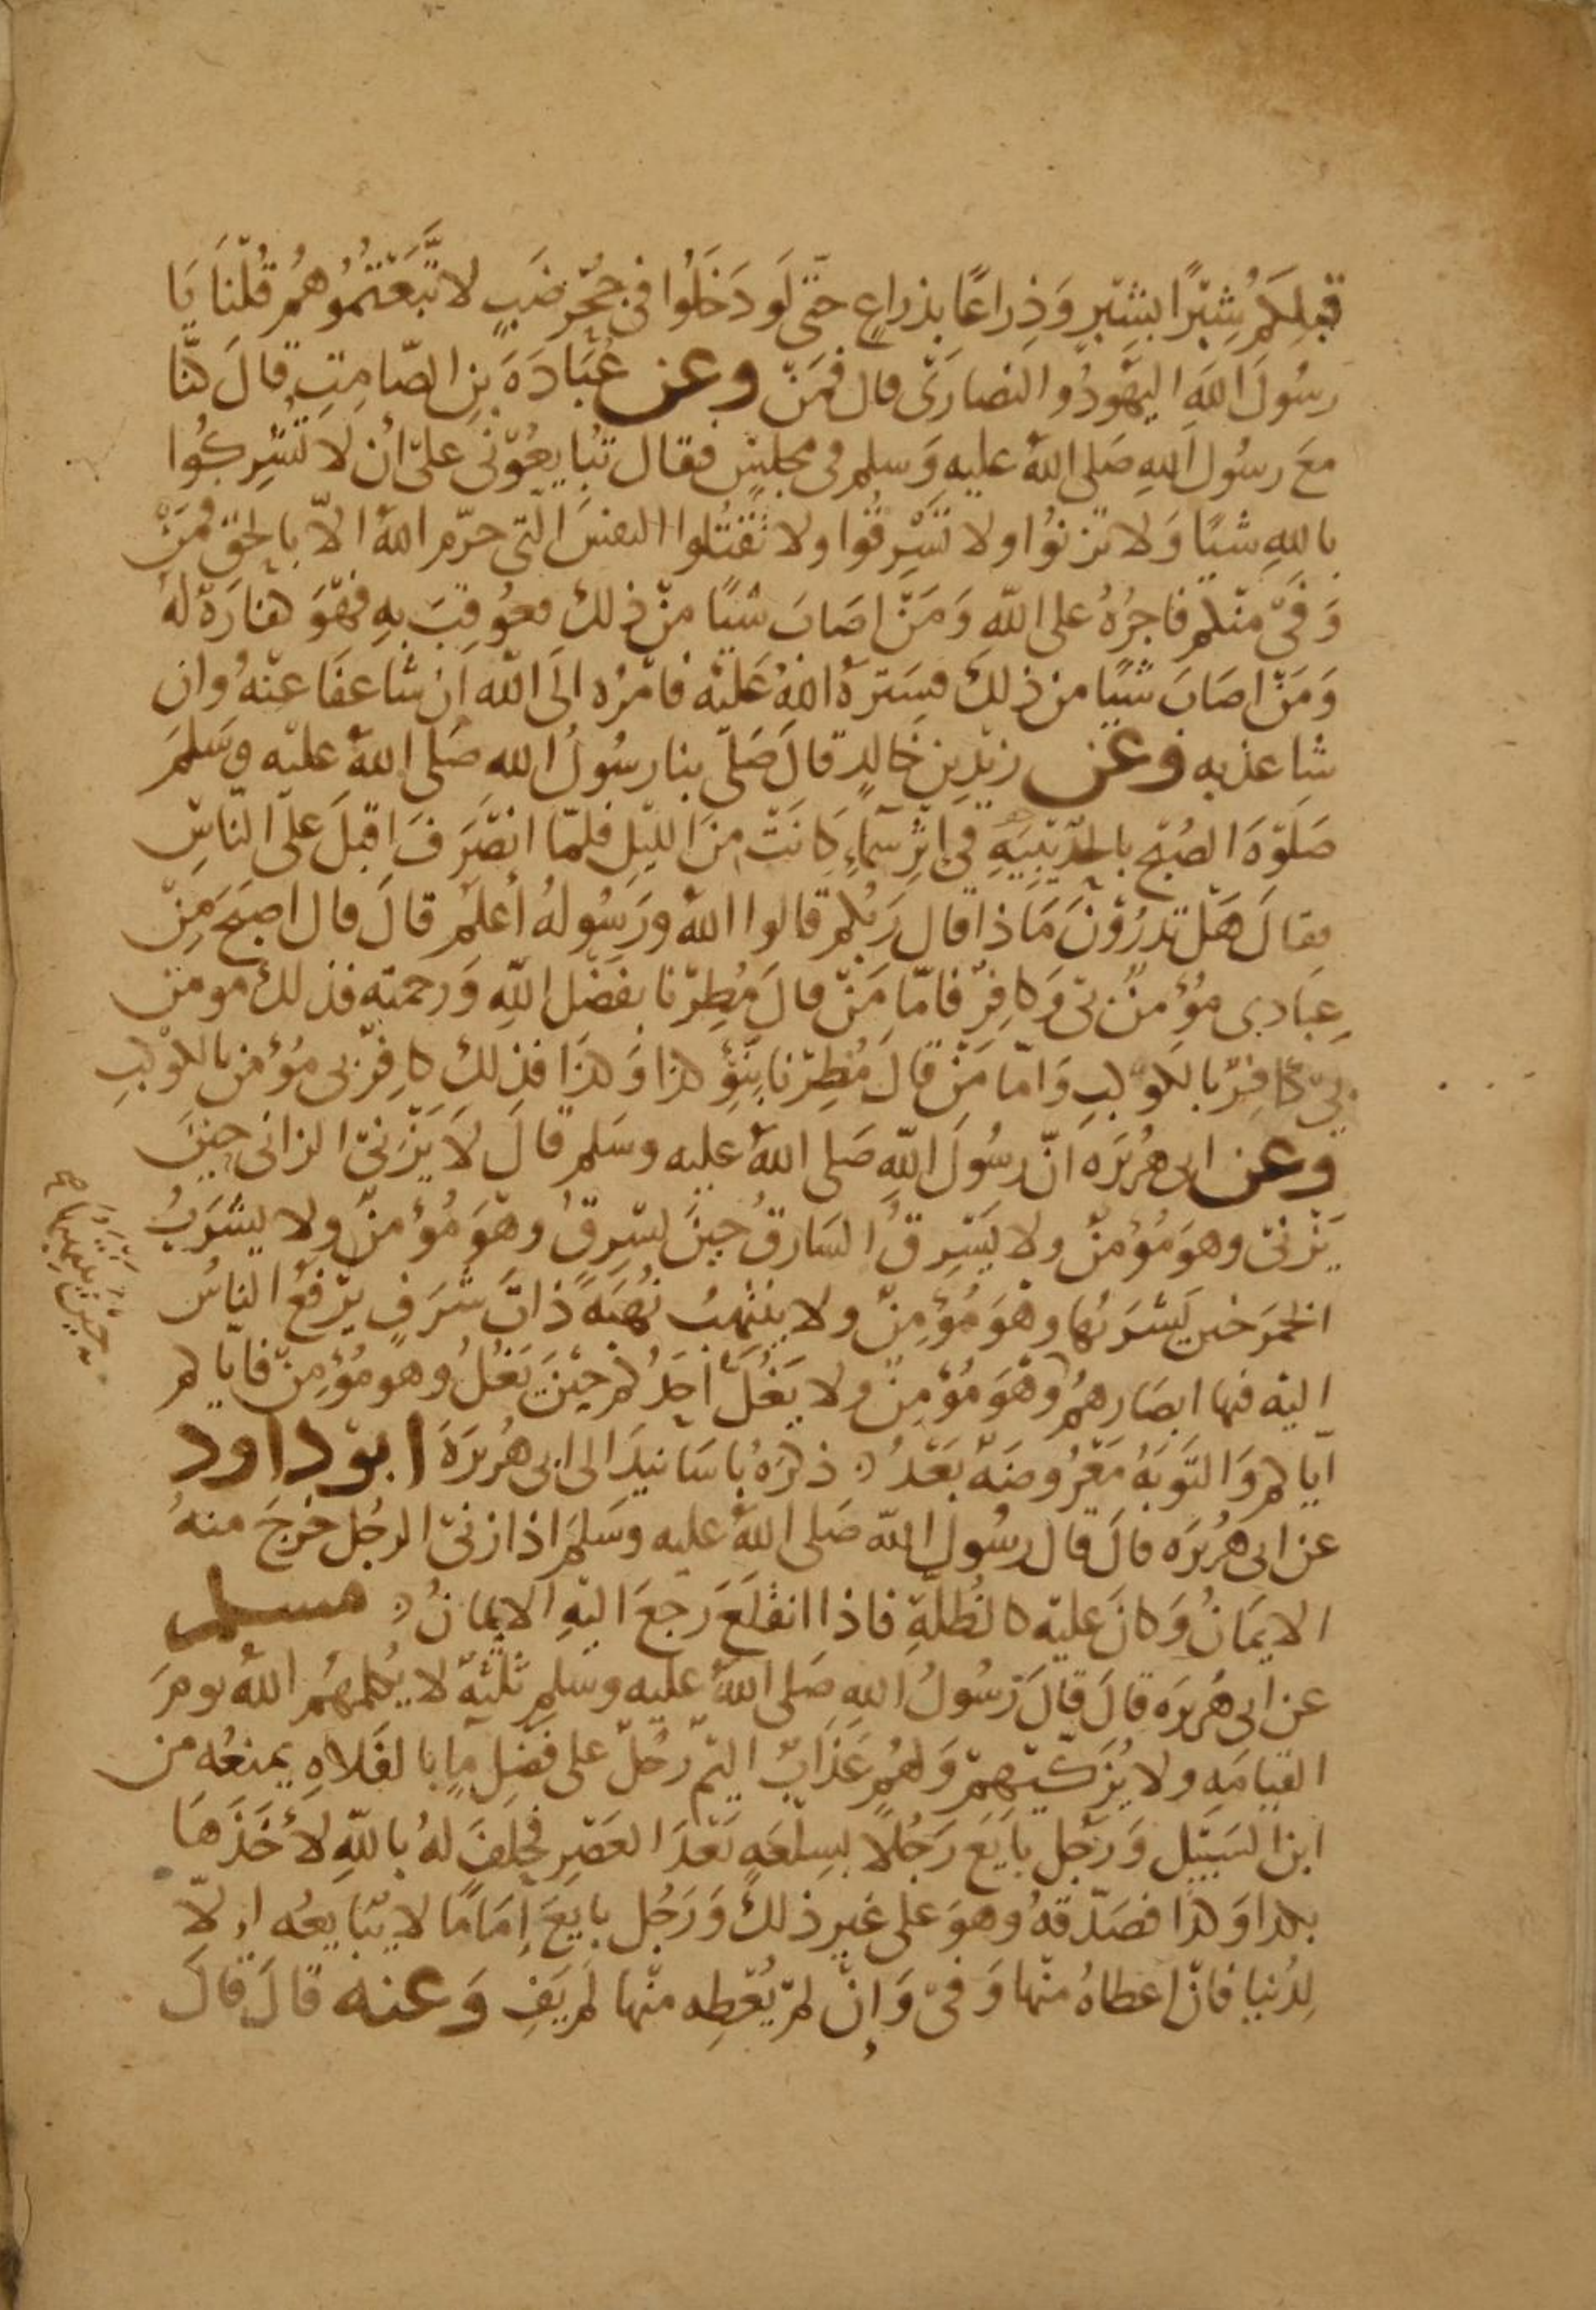 قبلكم شِبْرًا بشِبْرٍ وَذِراعًا بذراعٍ حتّى لَو دَخَلُوا فى جُحْرِ ضَبٍ لاتَّبَعْتُمُوهُمْ قُلْنَا يَا
رسُولَ اللهِ اليَهُودُ والنصارَىٰ قال فَمَنْ وعن عُبَادَةَ بنِ الصّامِتِ قالَ كنَّا
معَ رسُول اللهِ صَلى اللهُ عليهِ وَسلم فى مجلسٍ فقال تُبايعُوْنى علىّ ان لا تُشرِكُوا
باللهِ شيًا وَلا تزنوُا ولا تَسْرِقُوا ولا تَقْتُلوا النفسَ الّتى حرّم اللهُ الاّ بالحق فمَنْ
وَفىّ منْكم فاجرُهُ على اللهِ وَمَنْ اصَابَ شيًا منْ ذلك فعُوقِبَ بهِ فهْوَ كفارَةٌ لهُ
وَمَنْ اصَابَ شيًا من ذلكَ فسَترَهُ اللهُ عَليْه فامْرُه الَى اللهِ ان شا عفَا عنْهُ وان
شا عذبه وعن زيْدِ بنِ خَالدٍ قالَ صَلّى بنا رسُولُ اللهِ صَلى اللهُ عليْه وسَلمَ
صَلَوةَ الصُبْح بالحدَيْبيَهِ فى اثرِ سَمَآءٍ كَانَتْ منَ الليْلِ فلمّا انصَرَفَ اقبلَ علىَ النّاسِ
فقالَ هَلْ تدرُوْنَ مَا ذا قال رَبُكم قالوا اللهُ ورَسُولهُ أعلمُ قالَ قال اصبَحَ مِنْ
عِبَادِى مؤُمنٌ بىّ وَكافِرٌ فامّا مَنْ قالَ مُطِرْنا بفَضْل اللهِ وَرحمتهِ فذلكَ مومن
بىّ كافِرٌ بالكوْكبِ وَامّا مَنْ قالَ مُطِرْنا بنَوْءِ كذا وَكذَا فذلكَ كافِرٌ بى مؤُمن بالكوْكبِ
وعن ابى هُرَيرَه انّ رسُولَ اللهِ صَلى اللهُ عليه وسَلم قالَ لاَ يَزْنىّ الزانى حِينَ
يَزْنىّ وهوَ مُؤمنٌ ولا يَسْرِقُ السَارقُ حِينَ يسْرِقُ وهوَ مُؤْمنٌ ولا يشرَبُ
الخمرَ حين يَشْرَبُها وهوَ مُؤمِنٌ ولا ينتهبُ نُهبَهً ذاتَ شَرَفٍ يرْفعُ الناسُ
اليه فيها ابصَارهمُ وهْوَ مُؤمِنٌ ولا يَغُلُّ احَدُكُم حِيْنَ يَغُلُ وهو مُؤمِنٌ فايّاكم
ايّاكم وَالتّوبَهُ مَعْرُوضَهٌ بَعْدُ ذكرَهُ باسَانيدَ الى ابى هُريَرَةَ ابوْ داود
عن ابى هُرَيرَه قالَ قال رسُول اللهِ صَلى اللهُ عليه وسَلمَ اذا زنىّ الرجُل خرجَ منهُ
الايمَانُ وَكانَ عليْه كالظُلّةِ فاذا انقلَعَ رَجعَ اليْهِ الايمانُ مسلم
عن ابى هُرَيرَه قالَ قالَ رَسُولُ اللهِ صَلى اللهُ عليه وسَلم ثلثَهٌ لا يُكلمهُمُ اللهُ يومَ
القيامَهِ ولا يُزَكّيْهمْ وَلهُم عَذَابٌ اليمٌ رَجُلٌ على فَضْل مآءٍ بالفَلاهِ يمنعُه من
ابن السَبيْل وَرَجل بايَعَ رَجُلاً بسِلْعَهٍ بَعْدَ العَصْرِ فحلَفَ لهُ باللهِ لأخَذَهَا
بكذا وَكذا فصَدّقهُ وهوَ على غيرِ ذلكَ وَرَجُل بايعَ اِمَامًا لا يُبَايعُه الاّ
لِدُنيا فانْ اعطاهُ منْها وَفىّ وَإنْ لمْ يُعْطِه منْها لم يَفِ وَعنه قالَ قالَ
حِيْنَ يَنْتَهِبُهَا صح